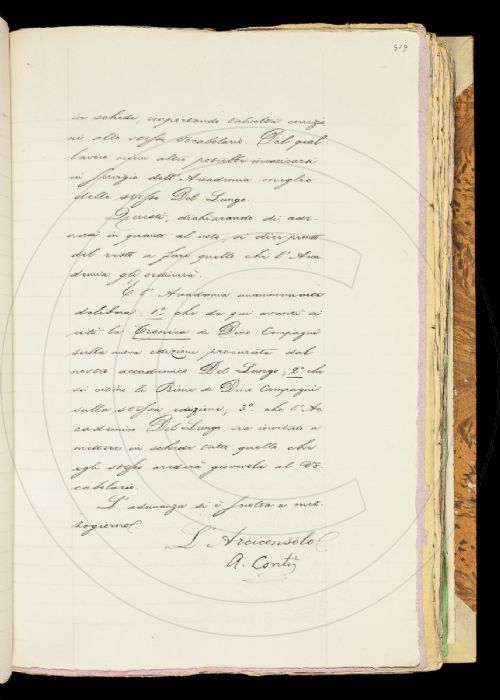 519
in schede, importando talvolta correzio
ni allo stesso Vocabolario. Del qual
lavoro niun altro potrebbe incaricarsi
in servigio dell'Accademia meglio
dello stesso Del Lungo.
Questi, dichiarando di aste-
nersi in quanto al voto, si dice pronto
del resto a fare quello che l'Acca
demia gli ordinerà.
E l'Accademia unanimemente
delibera: 1º. che da qui avanti si
citi la Cronica di Dino Compagni
sulla nuova edizione procurata dal
nostro accademico Del Lungo; 2º. che
si citino le Rime di Dino Compagni
sulla stessa edizione; 3º. che l'Ac
cademico Del Lungo sia invitato a
mettere in schede tutto quello che
egli stesso crederà giovevole al Vo-
cabolario.
L'adunanza si è sciolta a mez-
zogiorno.
L'Arciconsolo
A. Conti